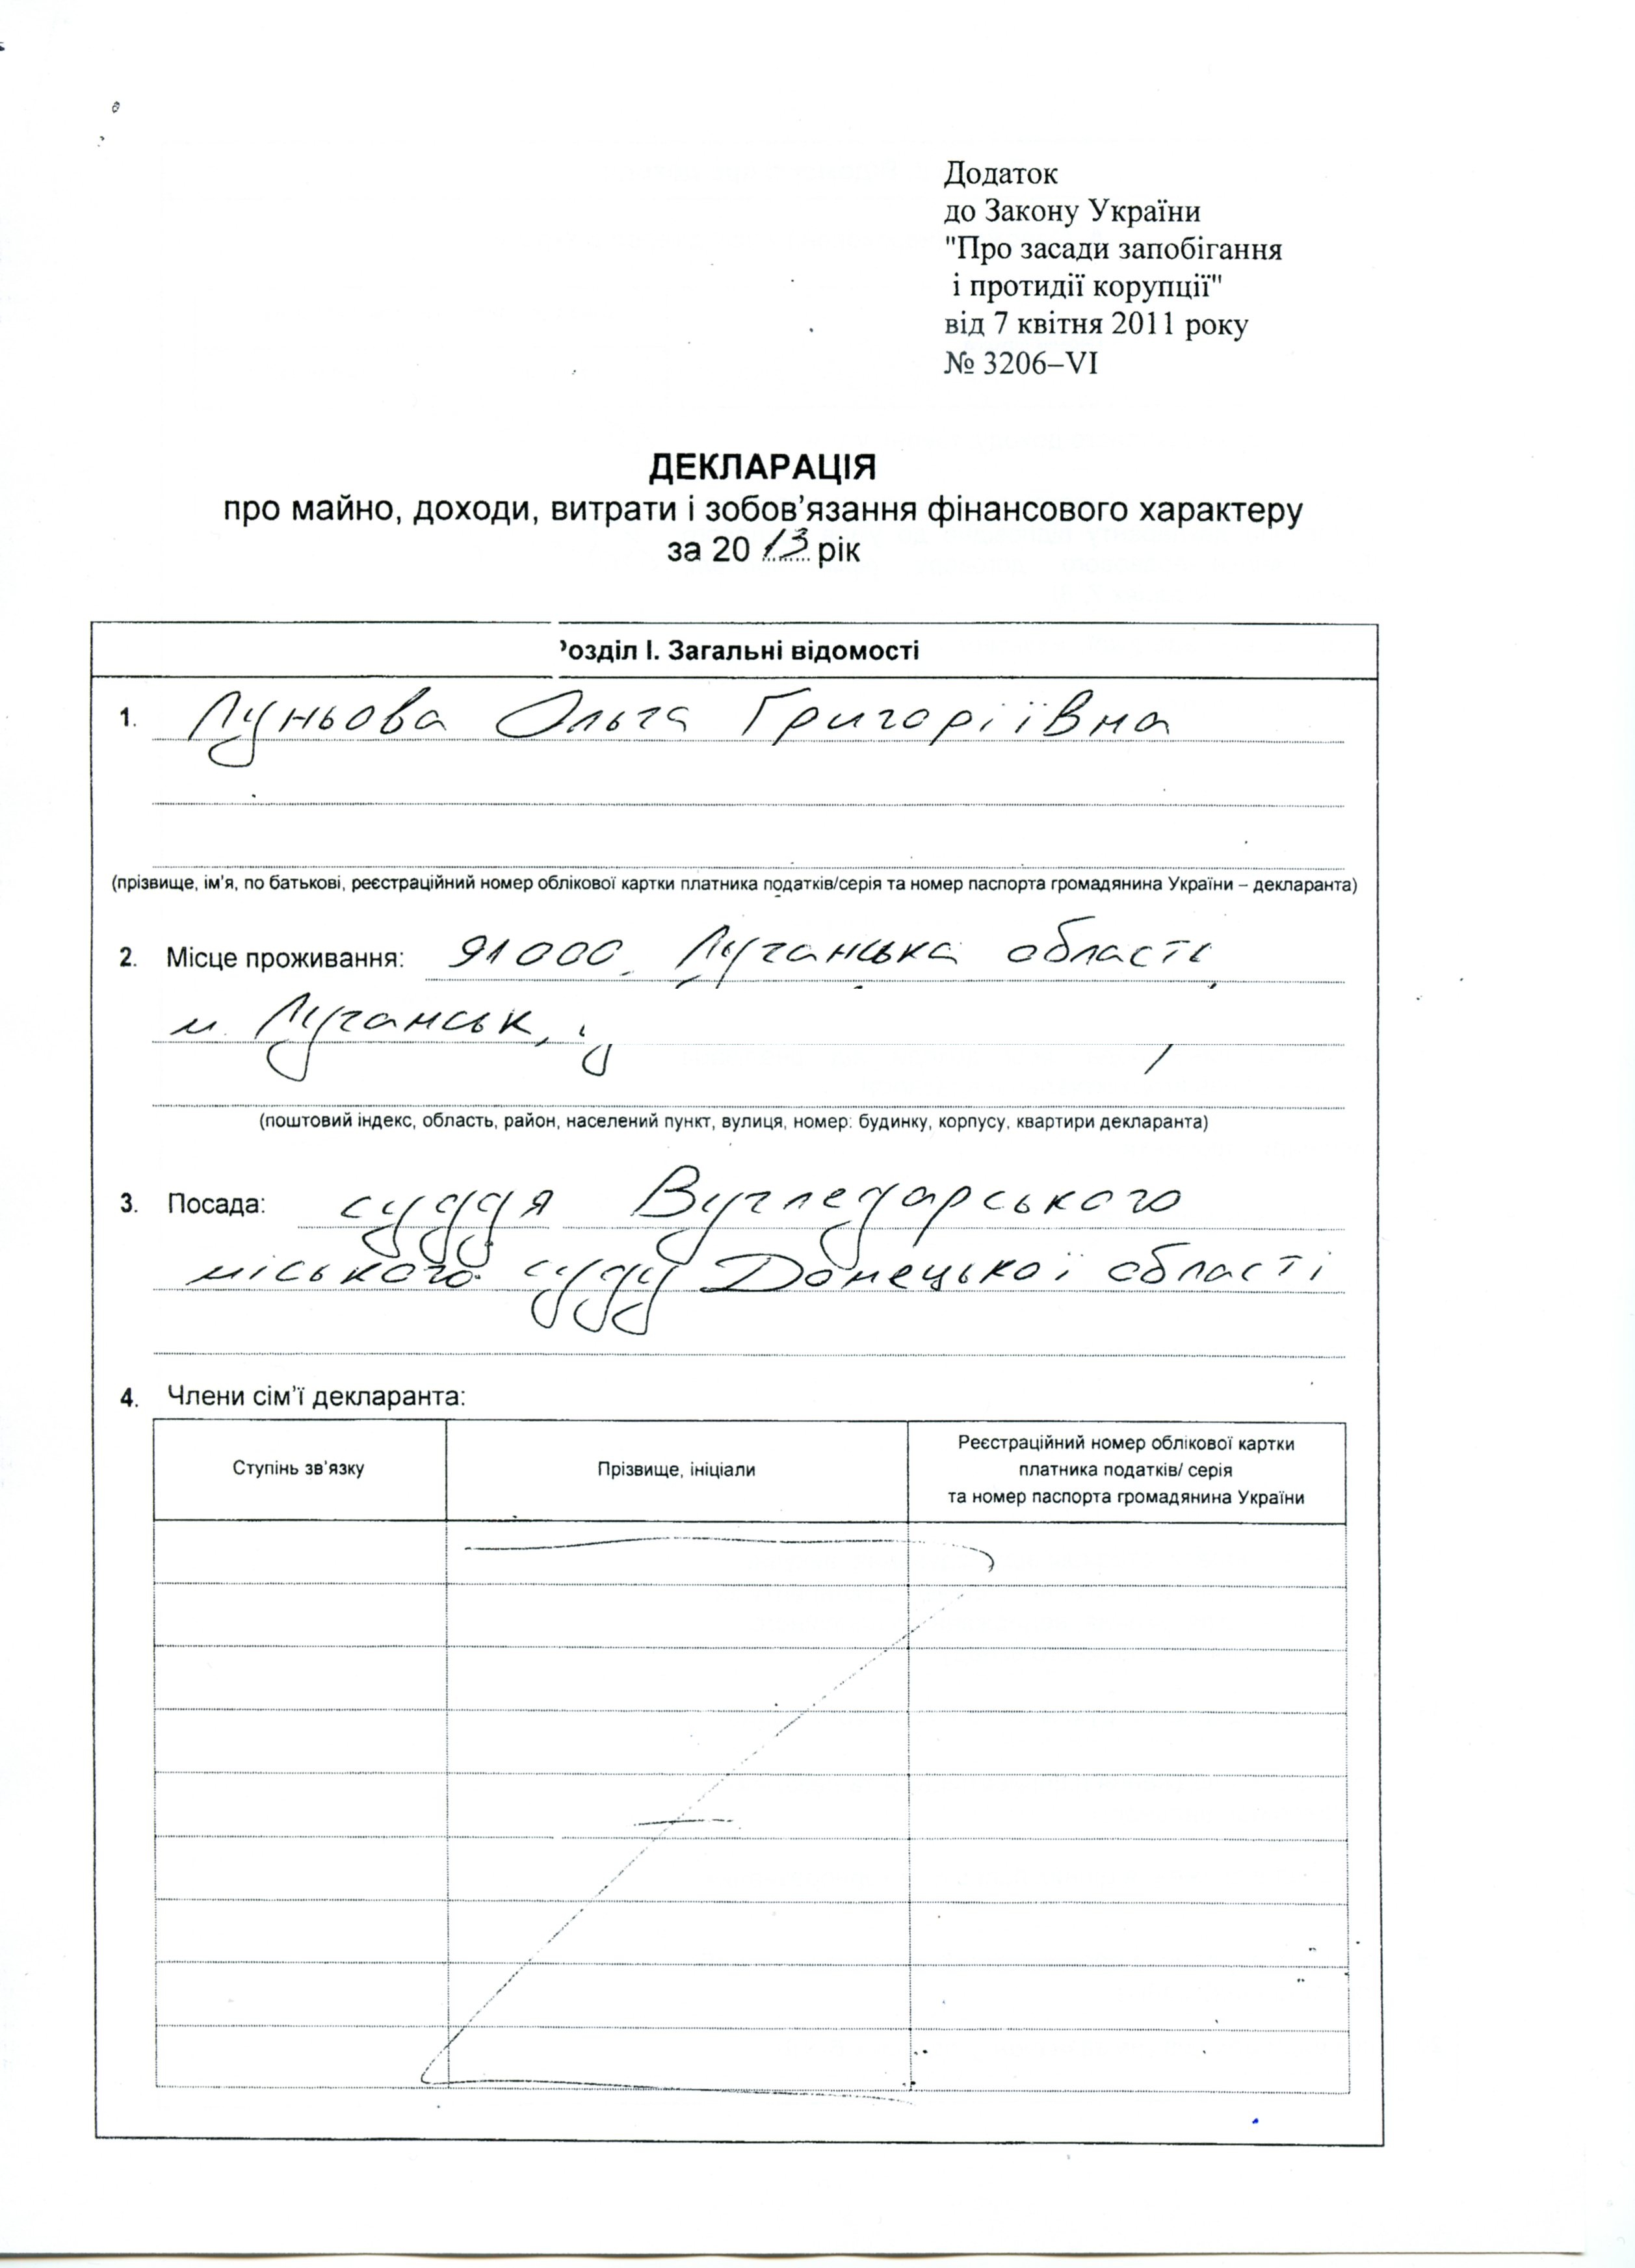 Додаток
до Закону України
"Про засади запобігання
і протидії корупції"
від 7 квітня 2011 року
№ 3206–VI
ДЕКЛАРАЦІЯ
про майно, доходи, витрати і зобов'язання фінансового характеру
за 2013 рік
озділ І. Загальні відомості
1. Луньова Ольга Григоріївна
(прізвище, ім'я, по батькові, реєстраційний номер облікової картки платника податків/серія та номер паспорта громадянина України – декларанта)
2. Місце проживання: 91000, Луганська область,
м. Луганськ,
(поштовий індекс, область, район, населений пункт, вулиця, номер: будинку, корпусу, квартири декларанта)
3. Посада: суддя Вугледарського
міського суду Донецької області
4. Члени сім'ї декларанта:
Ступінь зв'язку
Прізвище, ініціали
Реєстраційний номер облікової картки
платника податків/ серія
та номер паспорта громадянина України